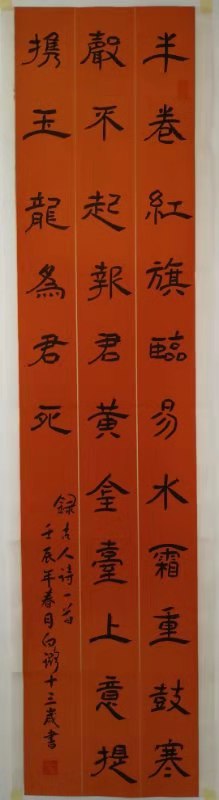 半卷紅旗臨易水霜重鼓寒
聲不起報君黃金臺上意提
携玉龍為君死
録古人詩一首
壬辰年春月白十三歲書